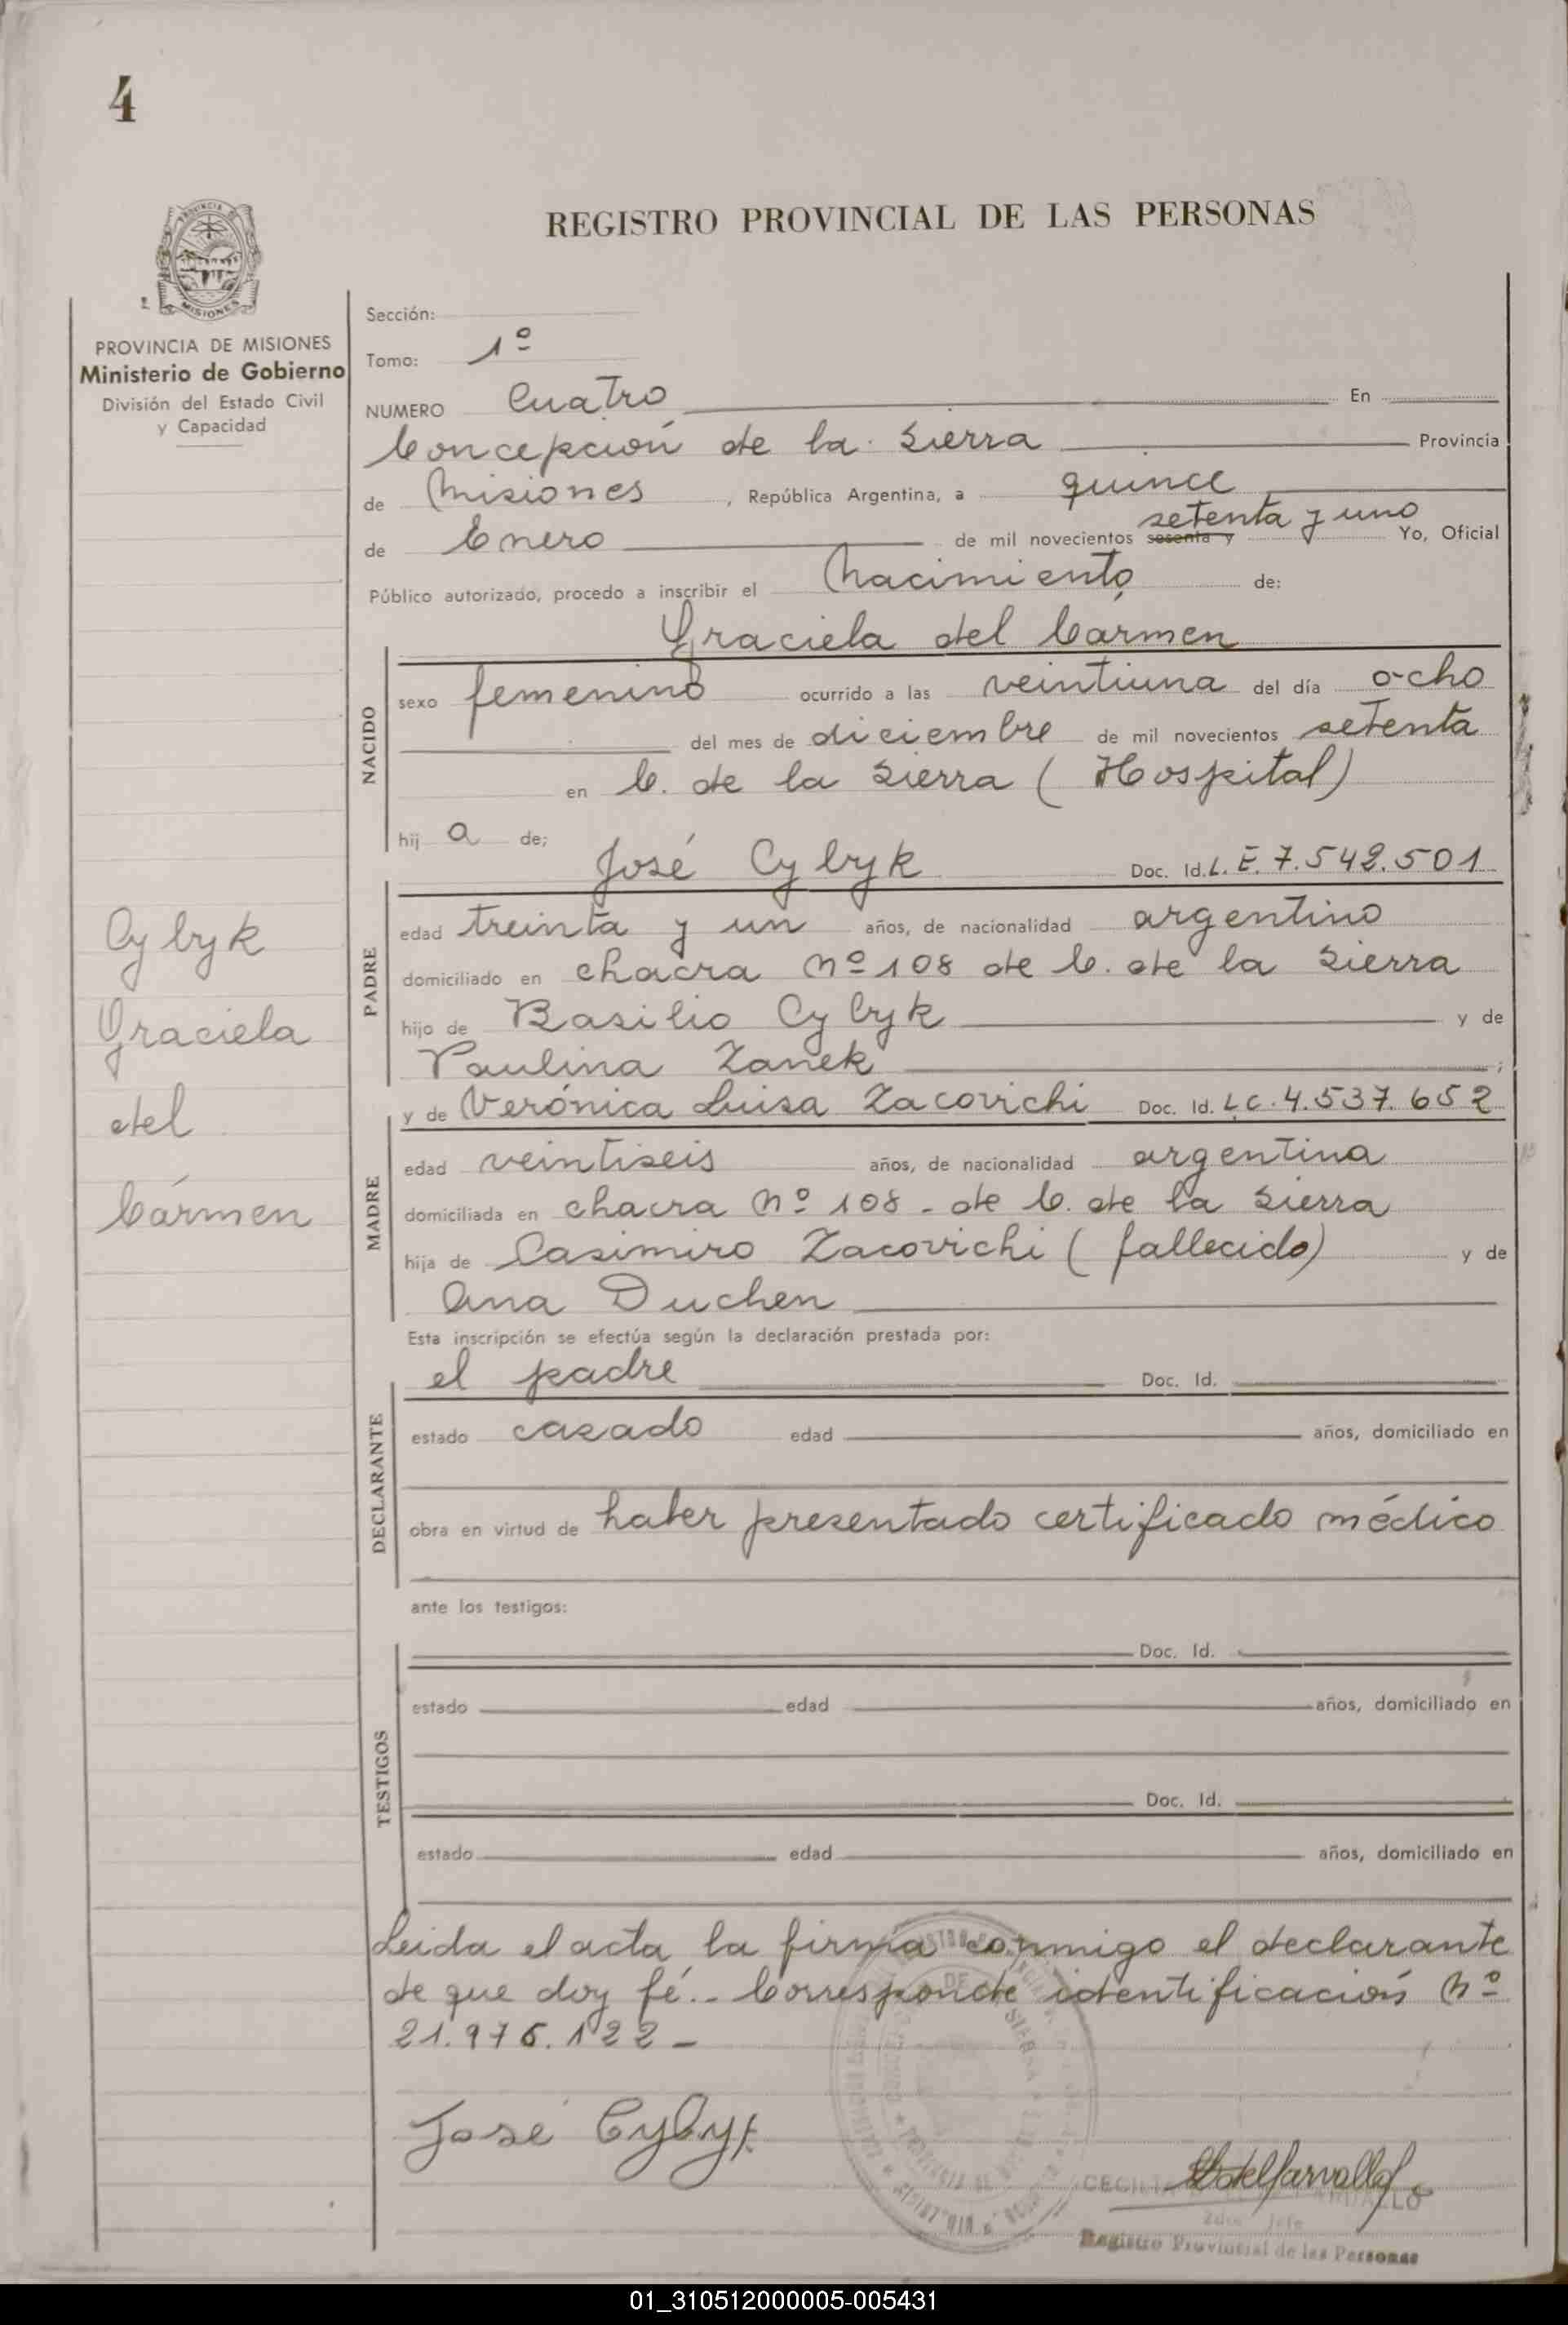 4
REGISTRO PROVINCIAL DE LAS PERSONAS
PROVINCIA DE
MISIONES
PROVINCIA DE MISIONES
Ministerio de Gobierno
División del Estado Civil
y Capacidad
Sección:
Tomo: 1º
NUMERO Cuatro En
Concepción de la Sierra Provincia
de Misiones, República Argentina, a quince
de Enero de mil novecientos sesenta y setenta y uno Yo, Oficial
Público autorizado, procedo a inscribir el Nacimiento de:
Graciela del Cármen
NACIDO
sexo femenino ocurrido a las veintiuna del día ocho
del mes de diciembre de mil novecientos setenta
en C. de la Sierra ( Hospital)
hij a de;
José Cybyk Doc. Id. L. E. 7.542.501
Cybyk
Graciela
del
Cármen
PADRE
edad treinta y un años, de nacionalidad argentino
domiciliado en chacra Nº 108 de C. de la Sierra
hijo de Basilio Cybyk y de
Paulina Zanek ;
y de Verónica Luisa Zacovichi Doc. Id. L C. 4.537.652
MADRE
edad veintiseis años, de nacionalidad argentina
domiciliada en chacra Nº 108 - de C. de la Sierra
hija de Casimiro Zacovichi ( fallecido) y de
Ana Duchen
Esta inscripción se efectúa según la declaración prestada por:
el padre Doc. Id.
DECLARANTE
estado casado edad años, domiciliado en
obra en virtud de haber presentado certificado médico
ante los testigos:
TESTIGOS
Doc. Id.
estado edad años, domiciliado en
Doc. Id.
estado edad años, domiciliado en
Leida el acta la firma conmigo el declarante
de que doy fé.- Corresponde identificación Nº
21.976.122 -
José Cybyk
Registro Provincial de las Personas
01_310512000005-005431